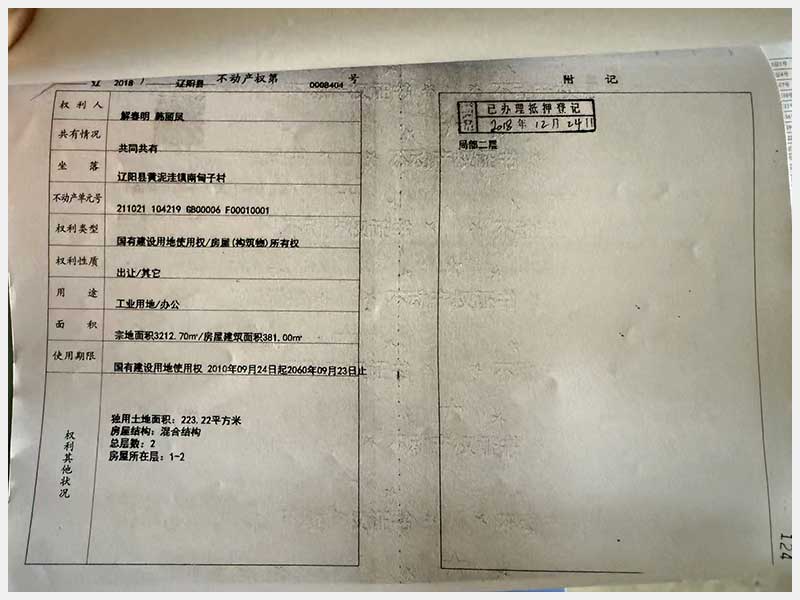 辽 2018 ( 辽阳县 不动产权第 0008404 号
权利人
解春明 韩丽凤
共有情况
共同共有
坐落
辽阳县黄泥洼镇南甸子村
不动产单元号
211021 104219 GB00006 F00010001
权利类型
国有建设用地使用权/房屋(构筑物)所有权
权利性质
出让/其它
用途
工业用地/办公
面积
宗地面积3212.70㎡/房屋建筑面积381.00㎡
使用期限
国有建设用地使用权 2010年09月24日起2060年09月23日止
权利其他状况
独用土地面积：223.22平方米
房屋结构：混合结构
总层数：2
房屋所在层：1-2
附 记
已办理抵押登记
2018年12月24日
局部二层
124